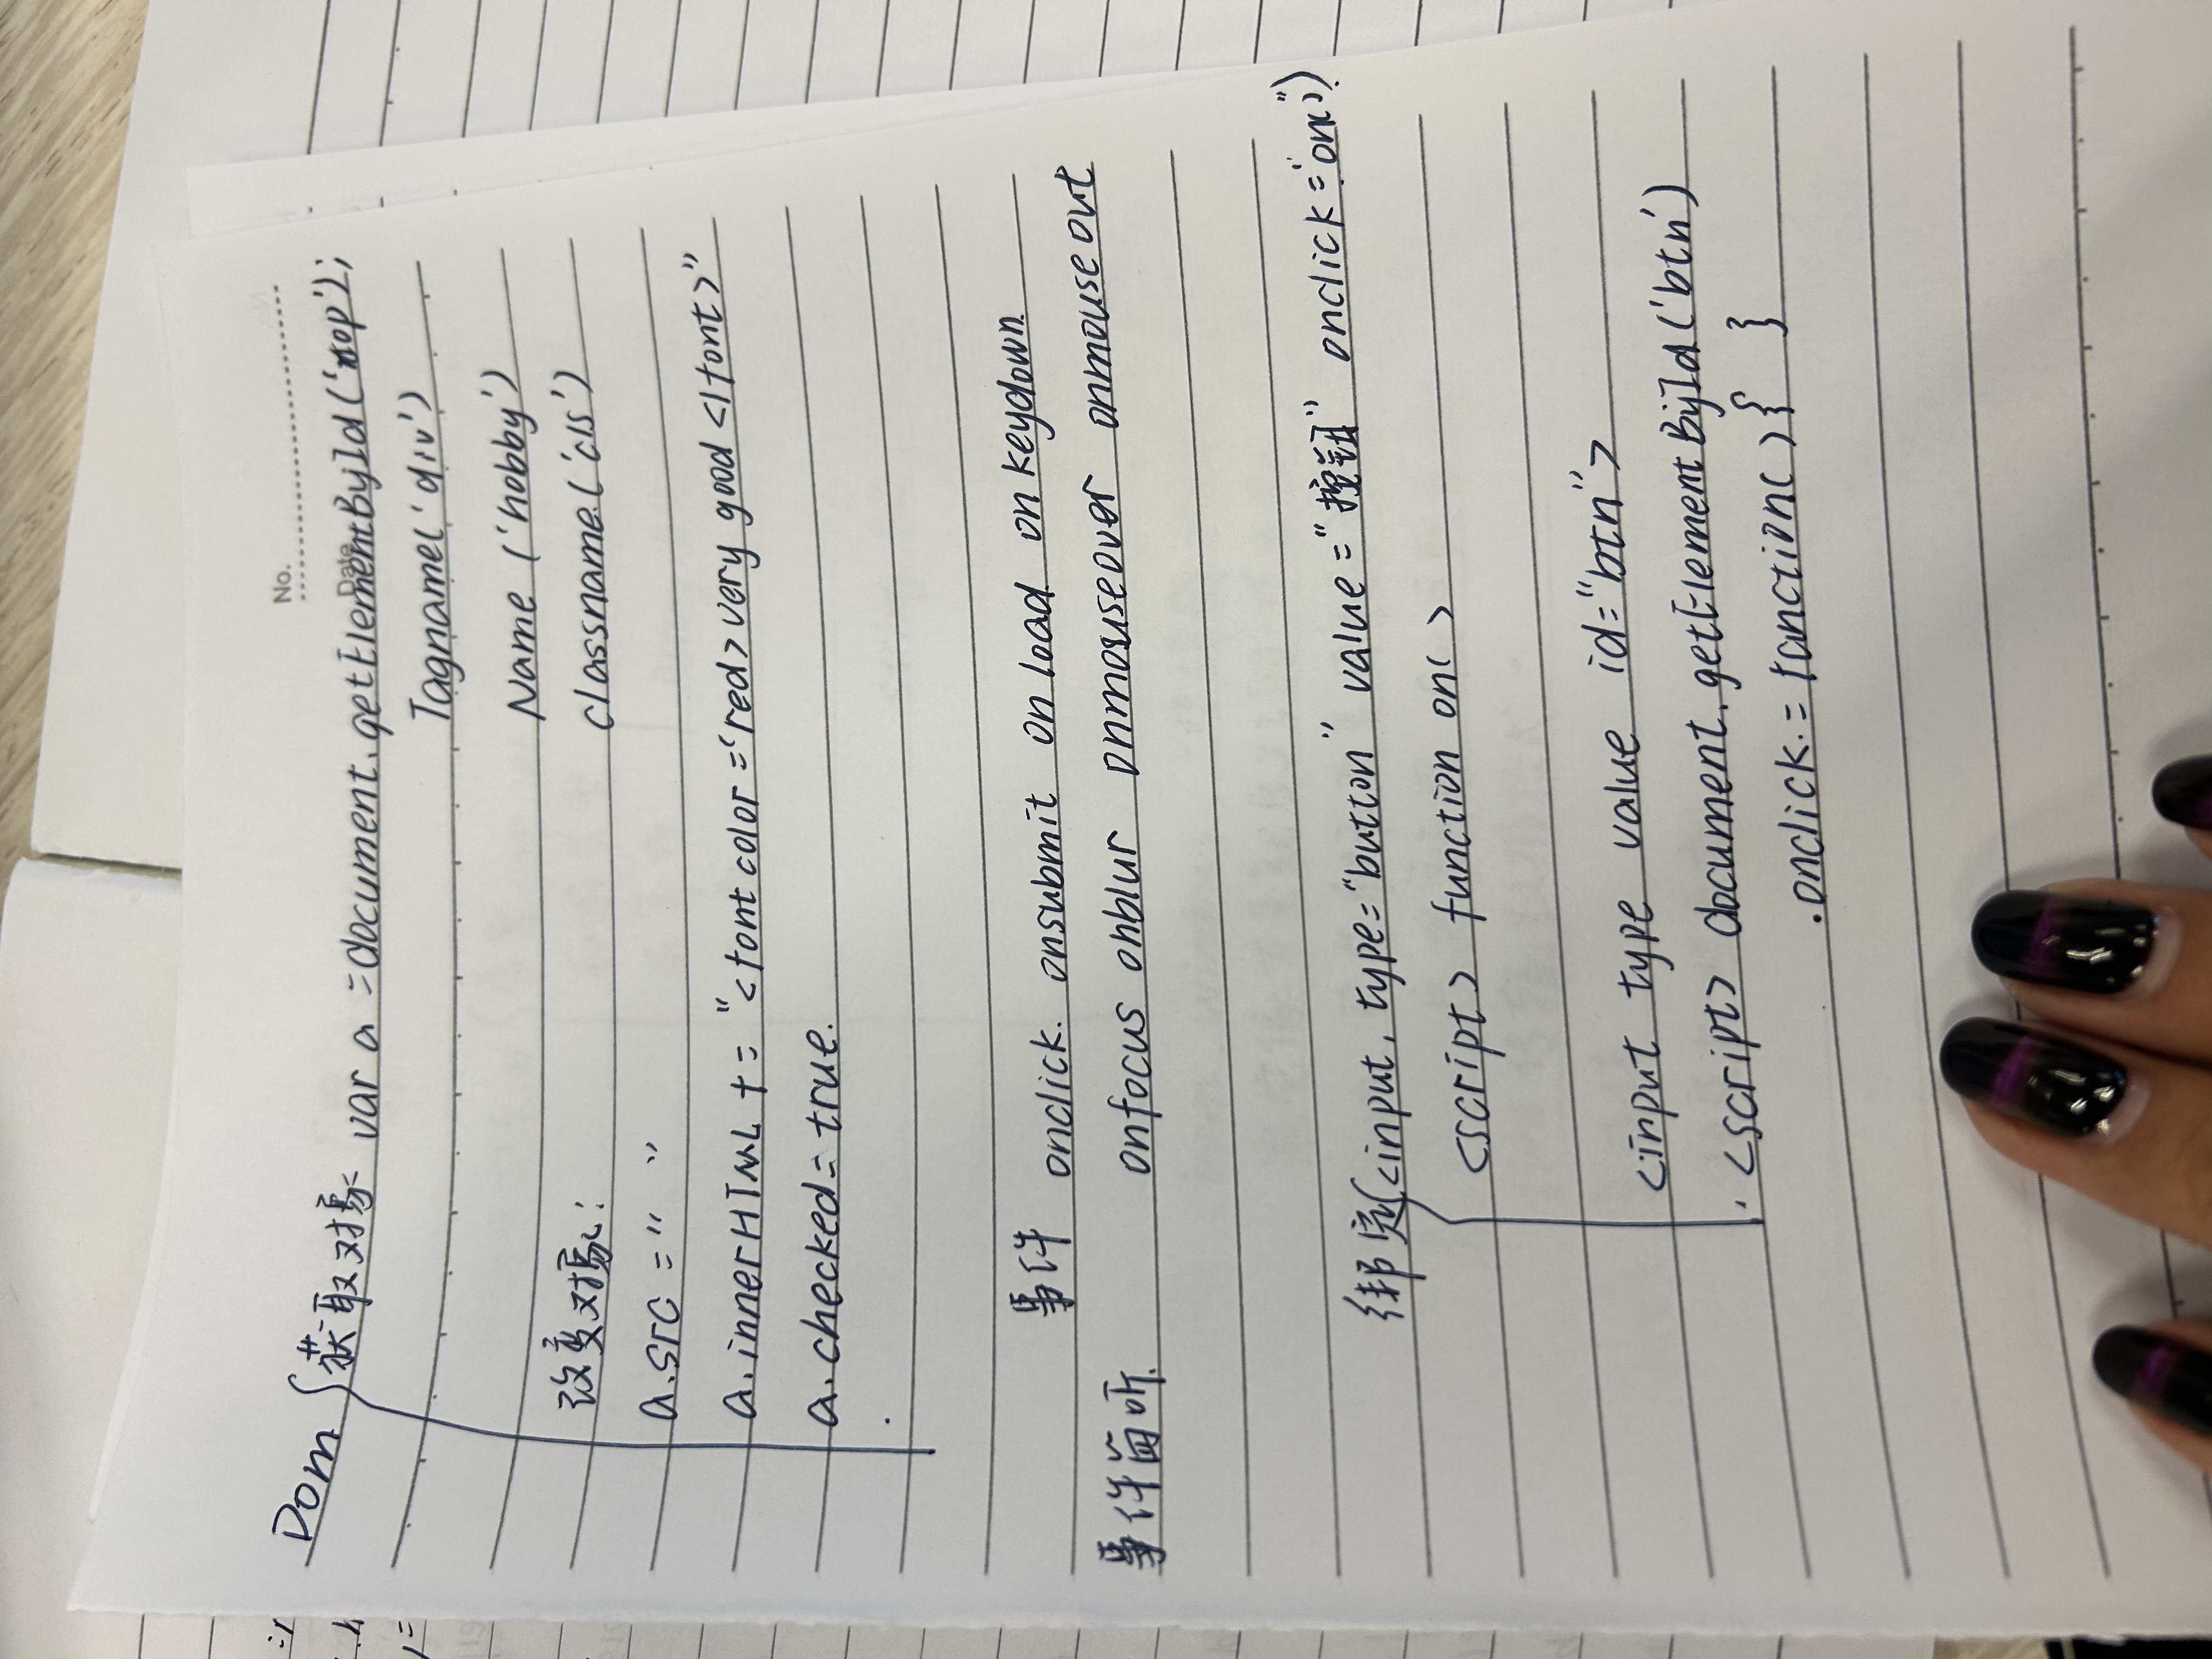 No.
Date
Dom 获取对象 var a =document.getElementById('top');
Tagname('div')
Name ('hobby')
改变对象:
classname('cls')
a.src =" "
a.innerHTML += "<font color ='red>very good </font>"
a.checked= true.
事件 onclick. onsubmit onload onkeydown
事件监听. onfocus onblur onmouseover onmouseout
绑定 <input, type="button" value="按钮" onclick="on()")
<script> function on( >
<input type value id="btn">
<script> document.getElementById('btn')
.onclick.= function( ){ }